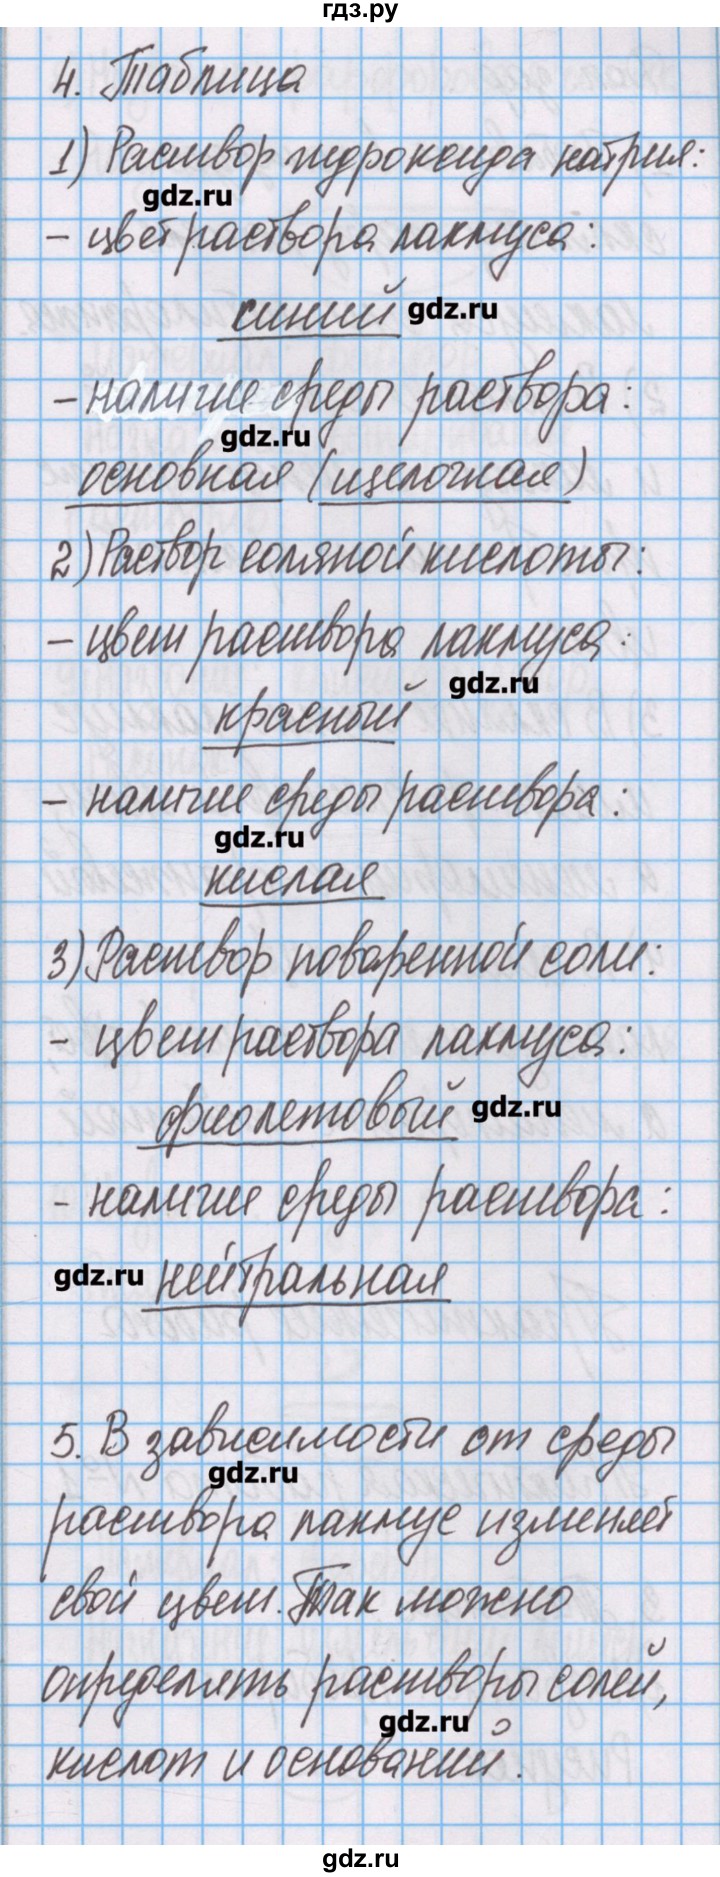 гдз.ру
4. Таблица
1) Раствор гидроксида натрия:
gdz.ru
- цвет раствора лакмуса:
синий gdz.ru
- наличие среды раствора:
gdz.ru
основная (щелочная)
2) Раствор соляной кислоты:
- цвет раствора лакмуса:
gdz.ru
красный
- наличие среды раствора:
gdz.ru
кислая
3) Раствор поваренной соли:
- цвет раствора лакмуса:
фиолетовый gdz.ru
- наличие среды раствора:
gdz.ru нейтральная
5. В зависимости от среды
gdz.ru
раствора лакмус изменяет
свой цвет. Так можно
определять растворы солей,
gdz.ru
кислот и оснований.
gdz.ru